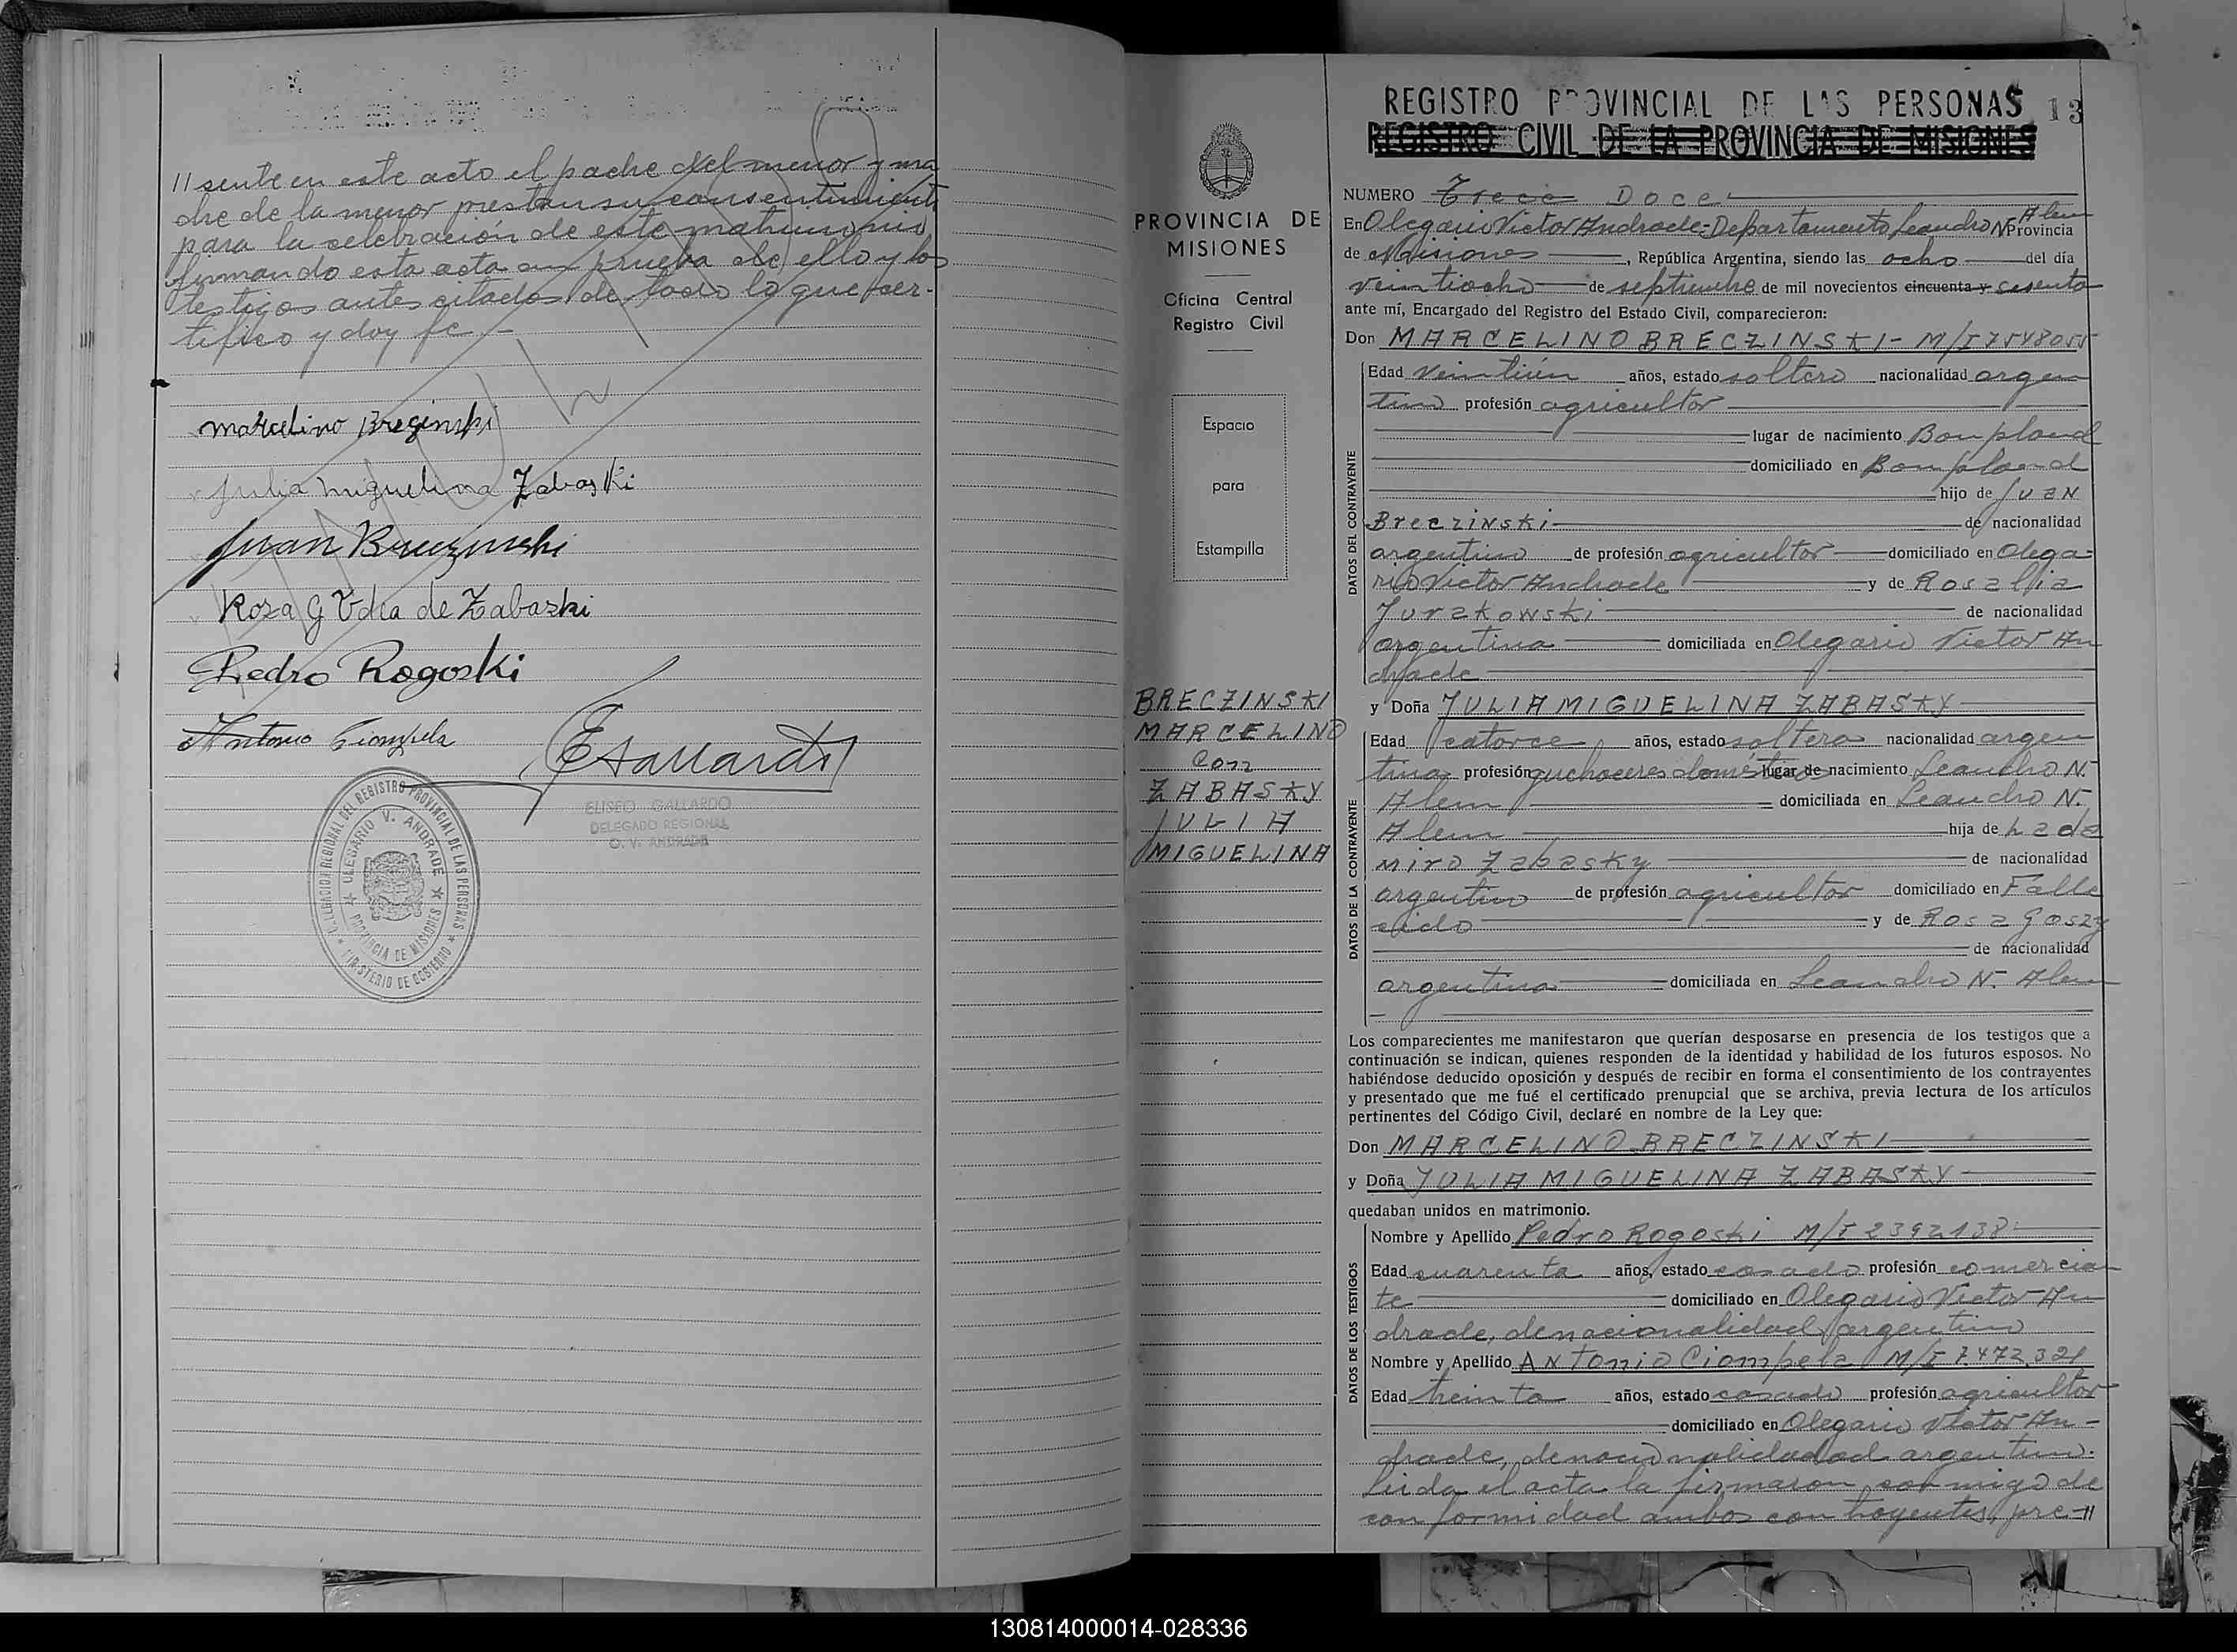 // sente en este acto el padre del menor y ma
dre de la menor prestan su consentimiento
para la celebración de este matrimonio,
firmando esta acta en prueba de ello y los
testigos antes citados de todo lo que cer-
tifico y doy fe.-
Marcelino Breginski
Julia Miguelina Zabaski
Juan Breczinski
Rosa G Vda de Zabaski
Pedro Rogoski
Antonio Ciompela
EGallardo
ELISEO GALLARDO
DELEGADO REGIONAL
O. V. ANDRADE
DELEGACION REGIONAL DEL REGISTRO PROVINCIAL DE LAS PERSONAS
OLEGARIO V. ANDRADE
PROVINCIA DE MISIONES
MINISTERIO DE GOBIERNO
PROVINCIA DE
MISIONES
Oficina Central
Registro Civil
Espacio
para
Estampilla
BRECZINSKI
MARCELINO
Con
ZABASKY
JULIA
MIGUELINA
REGISTRO PROVINCIAL DE LAS PERSONAS 13
REGISTRO CIVIL DE LA PROVINCIA DE MISIONES
NUMERO Trece Doce
En Olegario Victor Andrade-Departamento Leandro N. Alem Provincia
de Misiones, República Argentina, siendo las ocho del día
veintiocho de septiembre de mil novecientos cincuenta y sesenta
ante mí, Encargado del Registro del Estado Civil, comparecieron:
Don MARCELINO BRECZINSKI - M/I 7548055
DATOS DEL CONTRAYENTE
Edad veintiún años, estado soltero nacionalidad argen
tino profesión agricultor
lugar de nacimiento Bonpland
domiciliado en Bonpland
hijo de Juan
Breczinski de nacionalidad
argentino de profesión agricultor domiciliado en Olega-
rio Victor Andrade y de Rosalia
Jurakowski de nacionalidad
argentina domiciliada en Olegario Victor An
drade
y Doña JULIA MIGUELINA ZABASKY
DATOS DE LA CONTRAYENTE
Edad catorce años, estado soltera nacionalidad argen
tina profesión quehaceres domésticos lugar de nacimiento Leandro N.
Alem domiciliada en Leandro N.
Alem hija de Lada
miro Zabasky de nacionalidad
argentino de profesión agricultor domiciliado en Falle
cido y de Rosa Goszy
de nacionalidad
argentina domiciliada en Leandro N. Alem
Los comparecientes me manifestaron que querían desposarse en presencia de los testigos que a
continuación se indican, quienes responden de la identidad y habilidad de los futuros esposos. No
habiéndose deducido oposición y después de recibir en forma el consentimiento de los contrayentes
y presentado que me fué el certificado prenupcial que se archiva, previa lectura de los artículos
pertinentes del Código Civil, declaré en nombre de la Ley que:
Don MARCELINO BRECZINSKI
y Doña JULIA MIGUELINA ZABASKY
quedaban unidos en matrimonio.
DATOS DE LOS TESTIGOS
Nombre y Apellido Pedro Rogoski M/I 2392138
Edad cuarenta años, estado casado profesión comercian
te domiciliado en Olegario Victor An
drade, de nacionalidad argentino
Nombre y Apellido Antonio Ciompela M/I 7.472.321
Edad treinta años, estado casado profesión agricultor
domiciliado en Olegario Victor An-
drade, de nacionalidad argentino.
Leida el acta la firmaron conmigo de
conformidad ambos contrayentes, pre-//
130814000014-028336